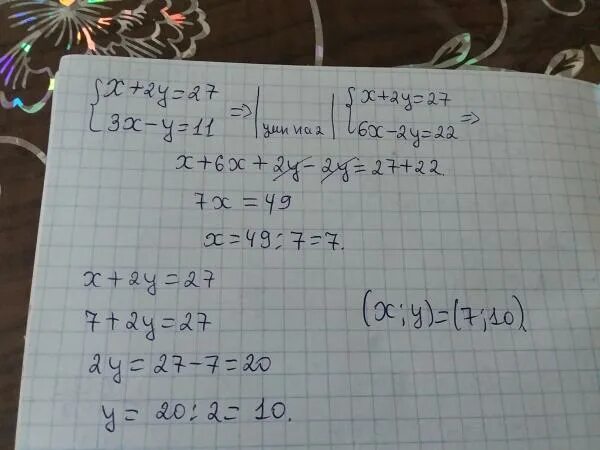 {x+2y=27 => | | {x+2y=27 =>
3x-y=11 умн на 2 6x-2y=22
x+6x+2y-2y=27+22.
7x=49
x=49:7=7.
x+2y=27
7+2y=27
2y=27-7=20
y=20:2=10.
(x;y)=(7;10)